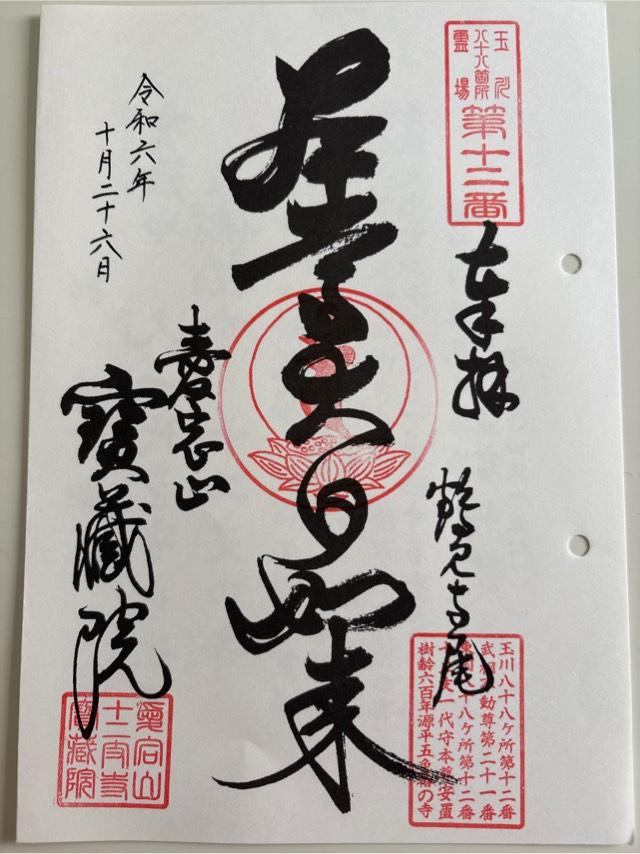 玉川
八十八箇所
霊場
第十二番
奉拝
鶴見寺尾
玉川八十八ヶ所第十二番
武相不動尊第二十一番
八十八ケ所第十二番
一代守本尊安置
樹齢六百年源平五色椿の寺
大日如来
令和六年
十月二十六日
愛宕山
寶藏院
愛宕山
寶藏院